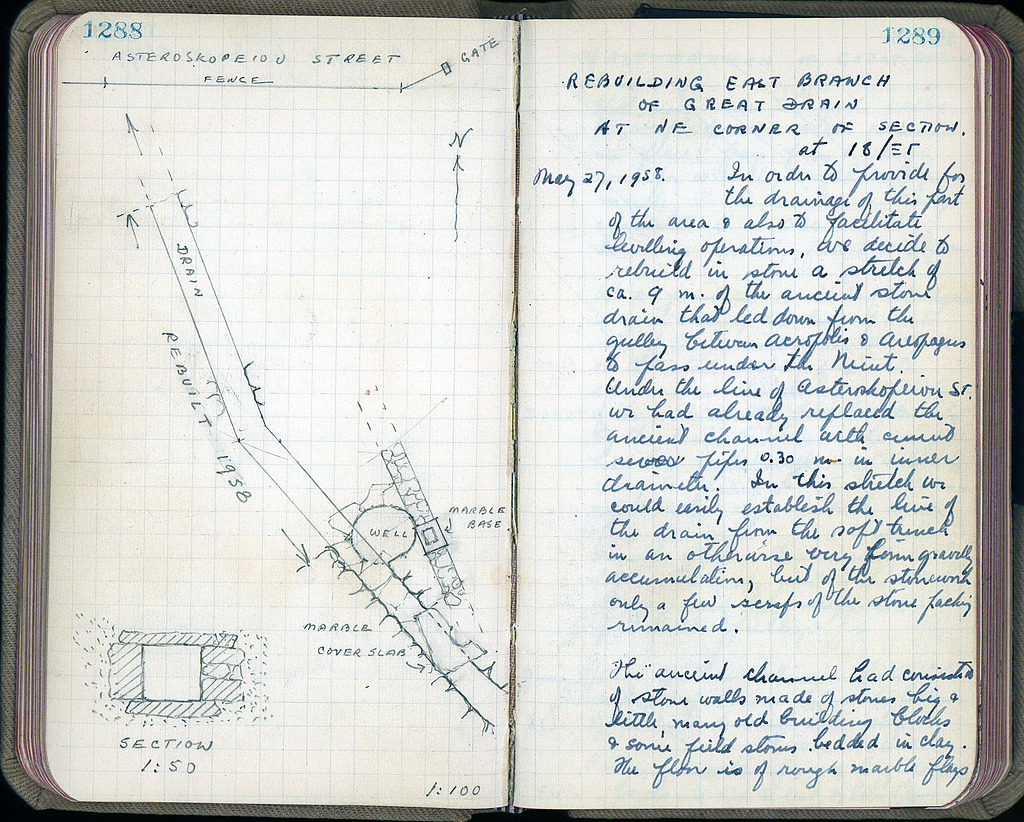 1288
ASTEROSKOPEIOU STREET
FENCE
GATE
N
DRAIN
REBUILT 1958
WELL
MARBLE
BASE
MARBLE
COVER SLAB
SECTION
1:50
1:100
1289
REBUILDING EAST BRANCH
OF GREAT DRAIN
AT NE CORNER OF SECTION.
at 18/ΞΓ
May 27, 1958. In order to provide for
the drainage of this part
of the area & also to facilitate
levelling operations, we decide to
rebuild in stone a stretch of
ca. 9 m. of the ancient stone
drain that led down from the
gulley between Acropolis & Areopagus
to pass under the
Under the line of Asteroskopeiou St.
we had already replaced the
ancient channel with cement
sewer pipes 0.30 m in inner
diameter. In this stretch we
could easily establish the line of
the drain from the soft trench
in an otherwise very firm gravelly
accumulation, but of the stonework
only a few scraps of the stone packing
remained.
The ancient channel had consisted
of stone walls made of stones big &
little, many old building blocks
& some field stones bedded in clay.
The floor is of rough marble flags